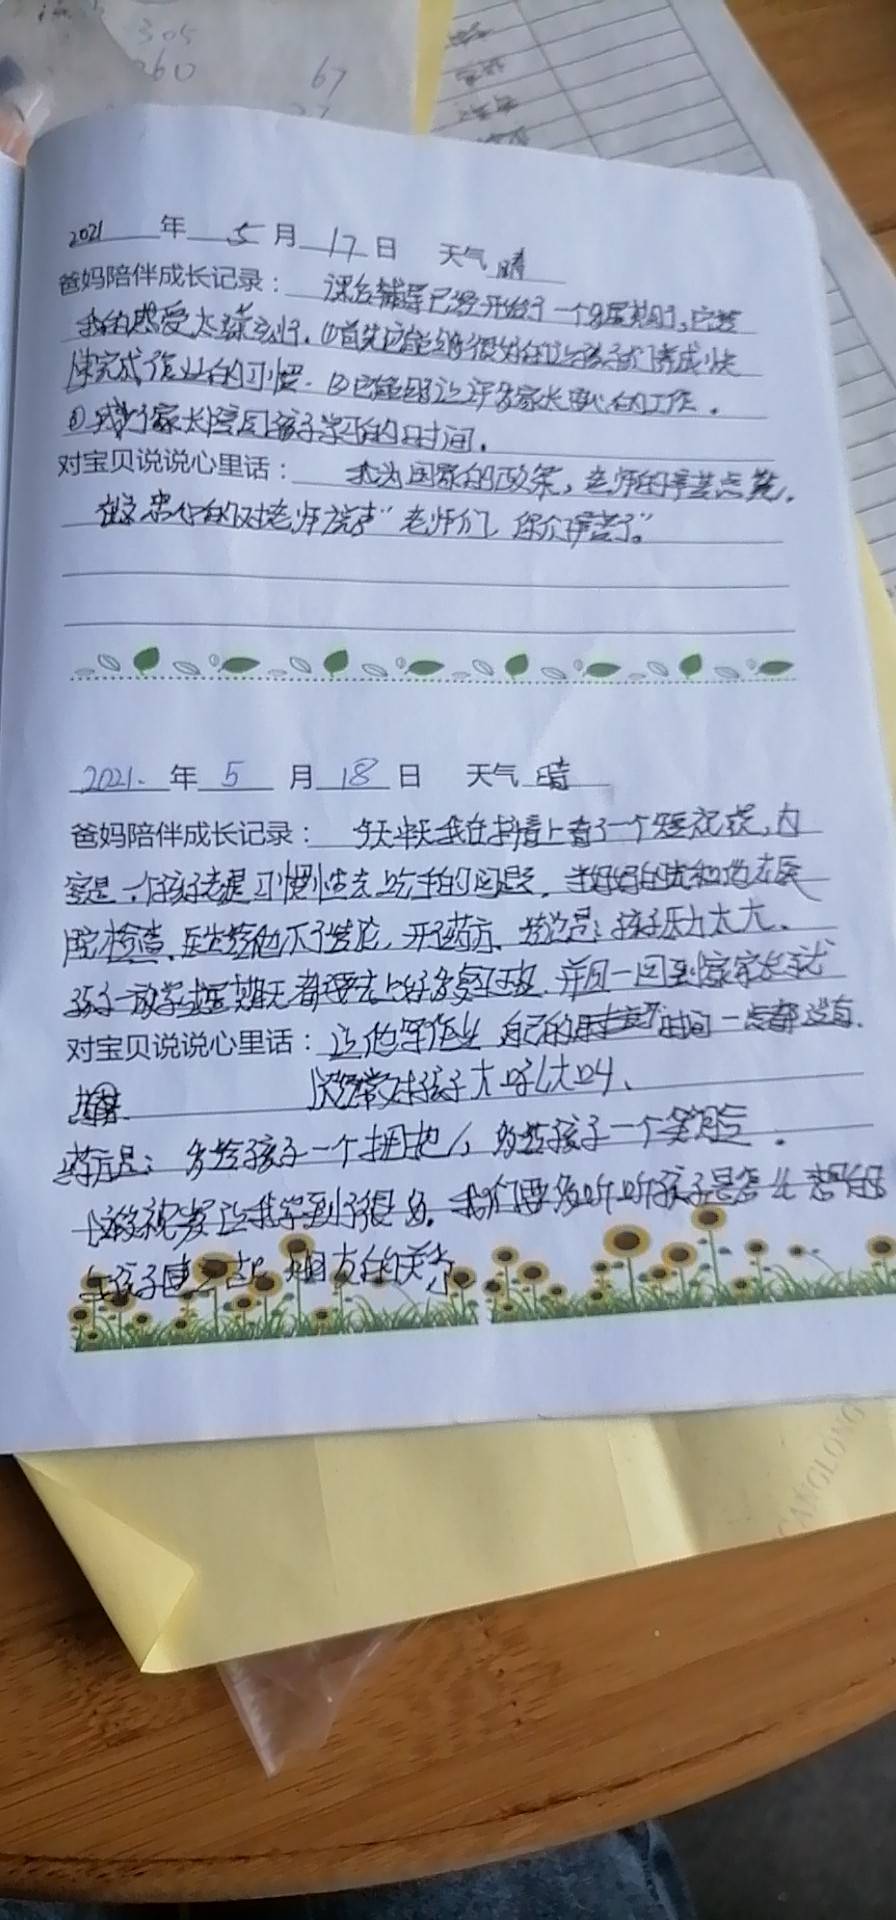 305
260
67
2021 年 5 月 17 日 天气 晴
爸妈陪伴成长记录： 课后辅导已经开始了一个星期了，它给
我的感受太深刻了。①首先它能够很好的让孩子们养成快
速完成作业的习惯。②它能够让许多家长安心的工作。
③减少了家长陪同孩子学习的时间。
对宝贝说说心里话： 我为国家的政策，老师的辛苦点赞。
的对老师说声“老师们 你们辛苦了”。
2021. 年 5 月 18 日 天气 晴
爸妈陪伴成长记录： 今天中午我在抖音上看了一个短视频，内
容是一个孩子老是习惯性去吃手的问题，
院检查，医生给他 开了药方， 孩子压力太大、
孩子一放学或星期天都要去上好多复习班，并且一回到家家长就
对宝贝说说心里话： 让他写作业 自己的 时间一点都没有.
经常对孩子大吼大叫、
药方是：多给孩子一个拥抱，多给孩子一个笑脸。
视频让我学到了很多，我们要多听听孩子是怎么想的
与孩子建立起 朋友的关系
CANGLONG